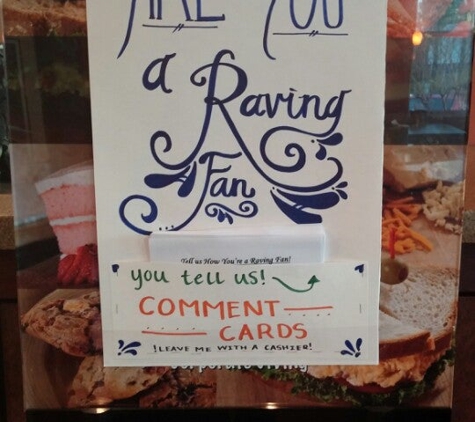 ARE YOU
a Raving
Fan
Tell us How You're a Raving Fan!
you tell us!
COMMENT
CARDS
!LEAVE ME WITH A CASHIER!